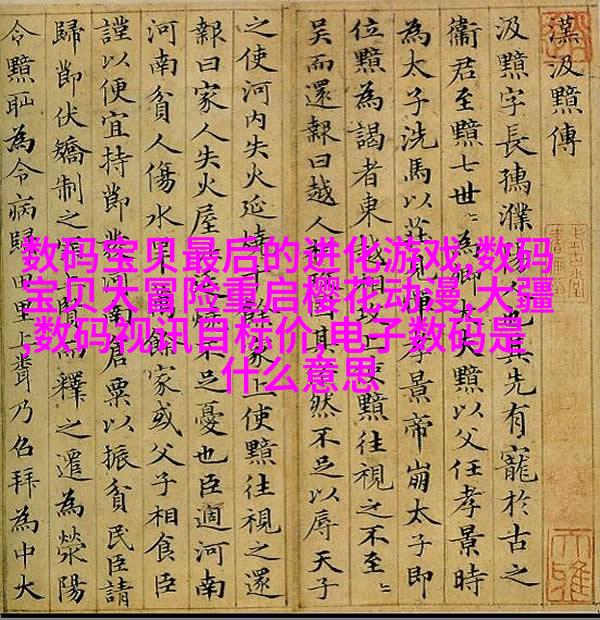 数码宝贝最后的进化游戏,数码
宝贝大冒险重启樱花动漫,大疆
,数码视讯目标价,电子数码是
什么意思
漢汲黯傳
汲黯字長孺濮陽人也其先有寵於古之
衞君至黯七世〻為卿大夫黯以父任孝景時
為太子洗馬以莊見憚孝景帝崩太子即
位黯為謁者東越相攻上使黯往視之不至〻
吳而還報曰越人相攻固其然不足以辱天子
之使河内失火延燒千餘家上使黯往視之還
報曰家人失火屋比延燒不足憂也臣過河南
河南貧人傷水旱萬餘家或父子相食臣
謹以便宜持節發河南倉粟以振貧民臣請
歸節伏矯制之罪上賢而釋之遷為滎陽
令黯恥為令病歸田里上乃召拜為中大